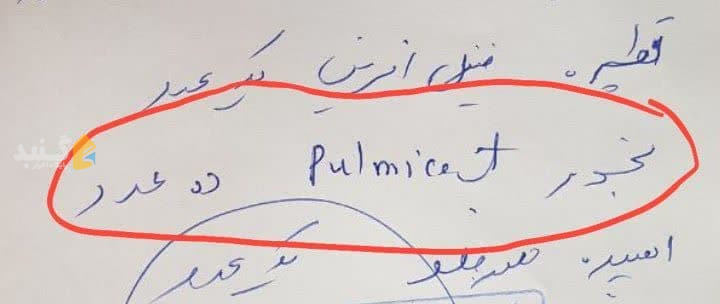 قطره فنیل افرین یک عدد
بخور Pulmicort ده عدد
اسپره یک عدد
گنبد